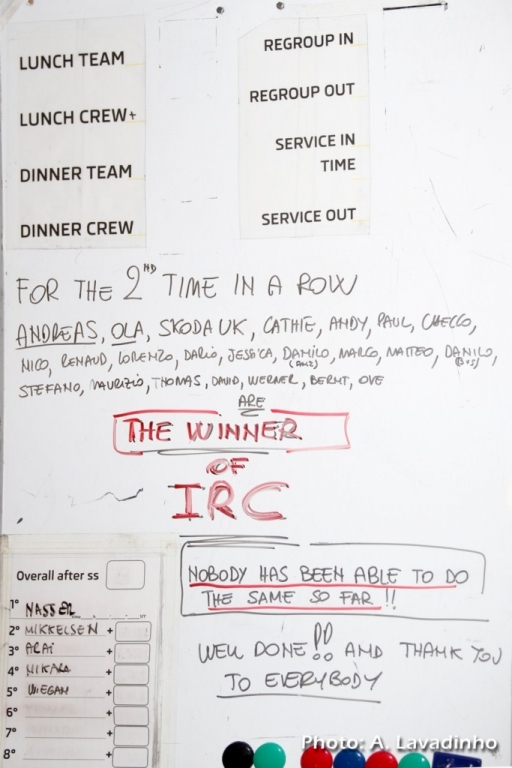 LUNCH TEAM
LUNCH CREW+
DINNER TEAM
DINNER CREW
REGROUP IN
REGROUP OUT
SERVICE IN
TIME
SERVICE OUT
FOR THE 2ND TIME IN A ROW
ANDREAS, OLA, SKODA UK, CATHIE, ANDY, PAUL, CHECCO,
NICO, RENAUD, LORENZO, DARIO, JESSICA, DAMILO, MARCO, MATTEO, DANILO,
STEFANO, MAURIZIO, THOMAS, DAVID, WERNER, BERNT, OVE
ARE
THE WINNER
OF
IRC
NOBODY HAS BEEN ABLE TO DO
THE SAME SO FAR !!
WELL DONE!! AND THANK YOU
TO EVERYBODY
Overall after ss
1° NASSER
2° MIKKELSEN +
3° ARAI +
4° +
5° WIEGAN +
6° +
7° +
8° +
Photo: A. Lavadinho